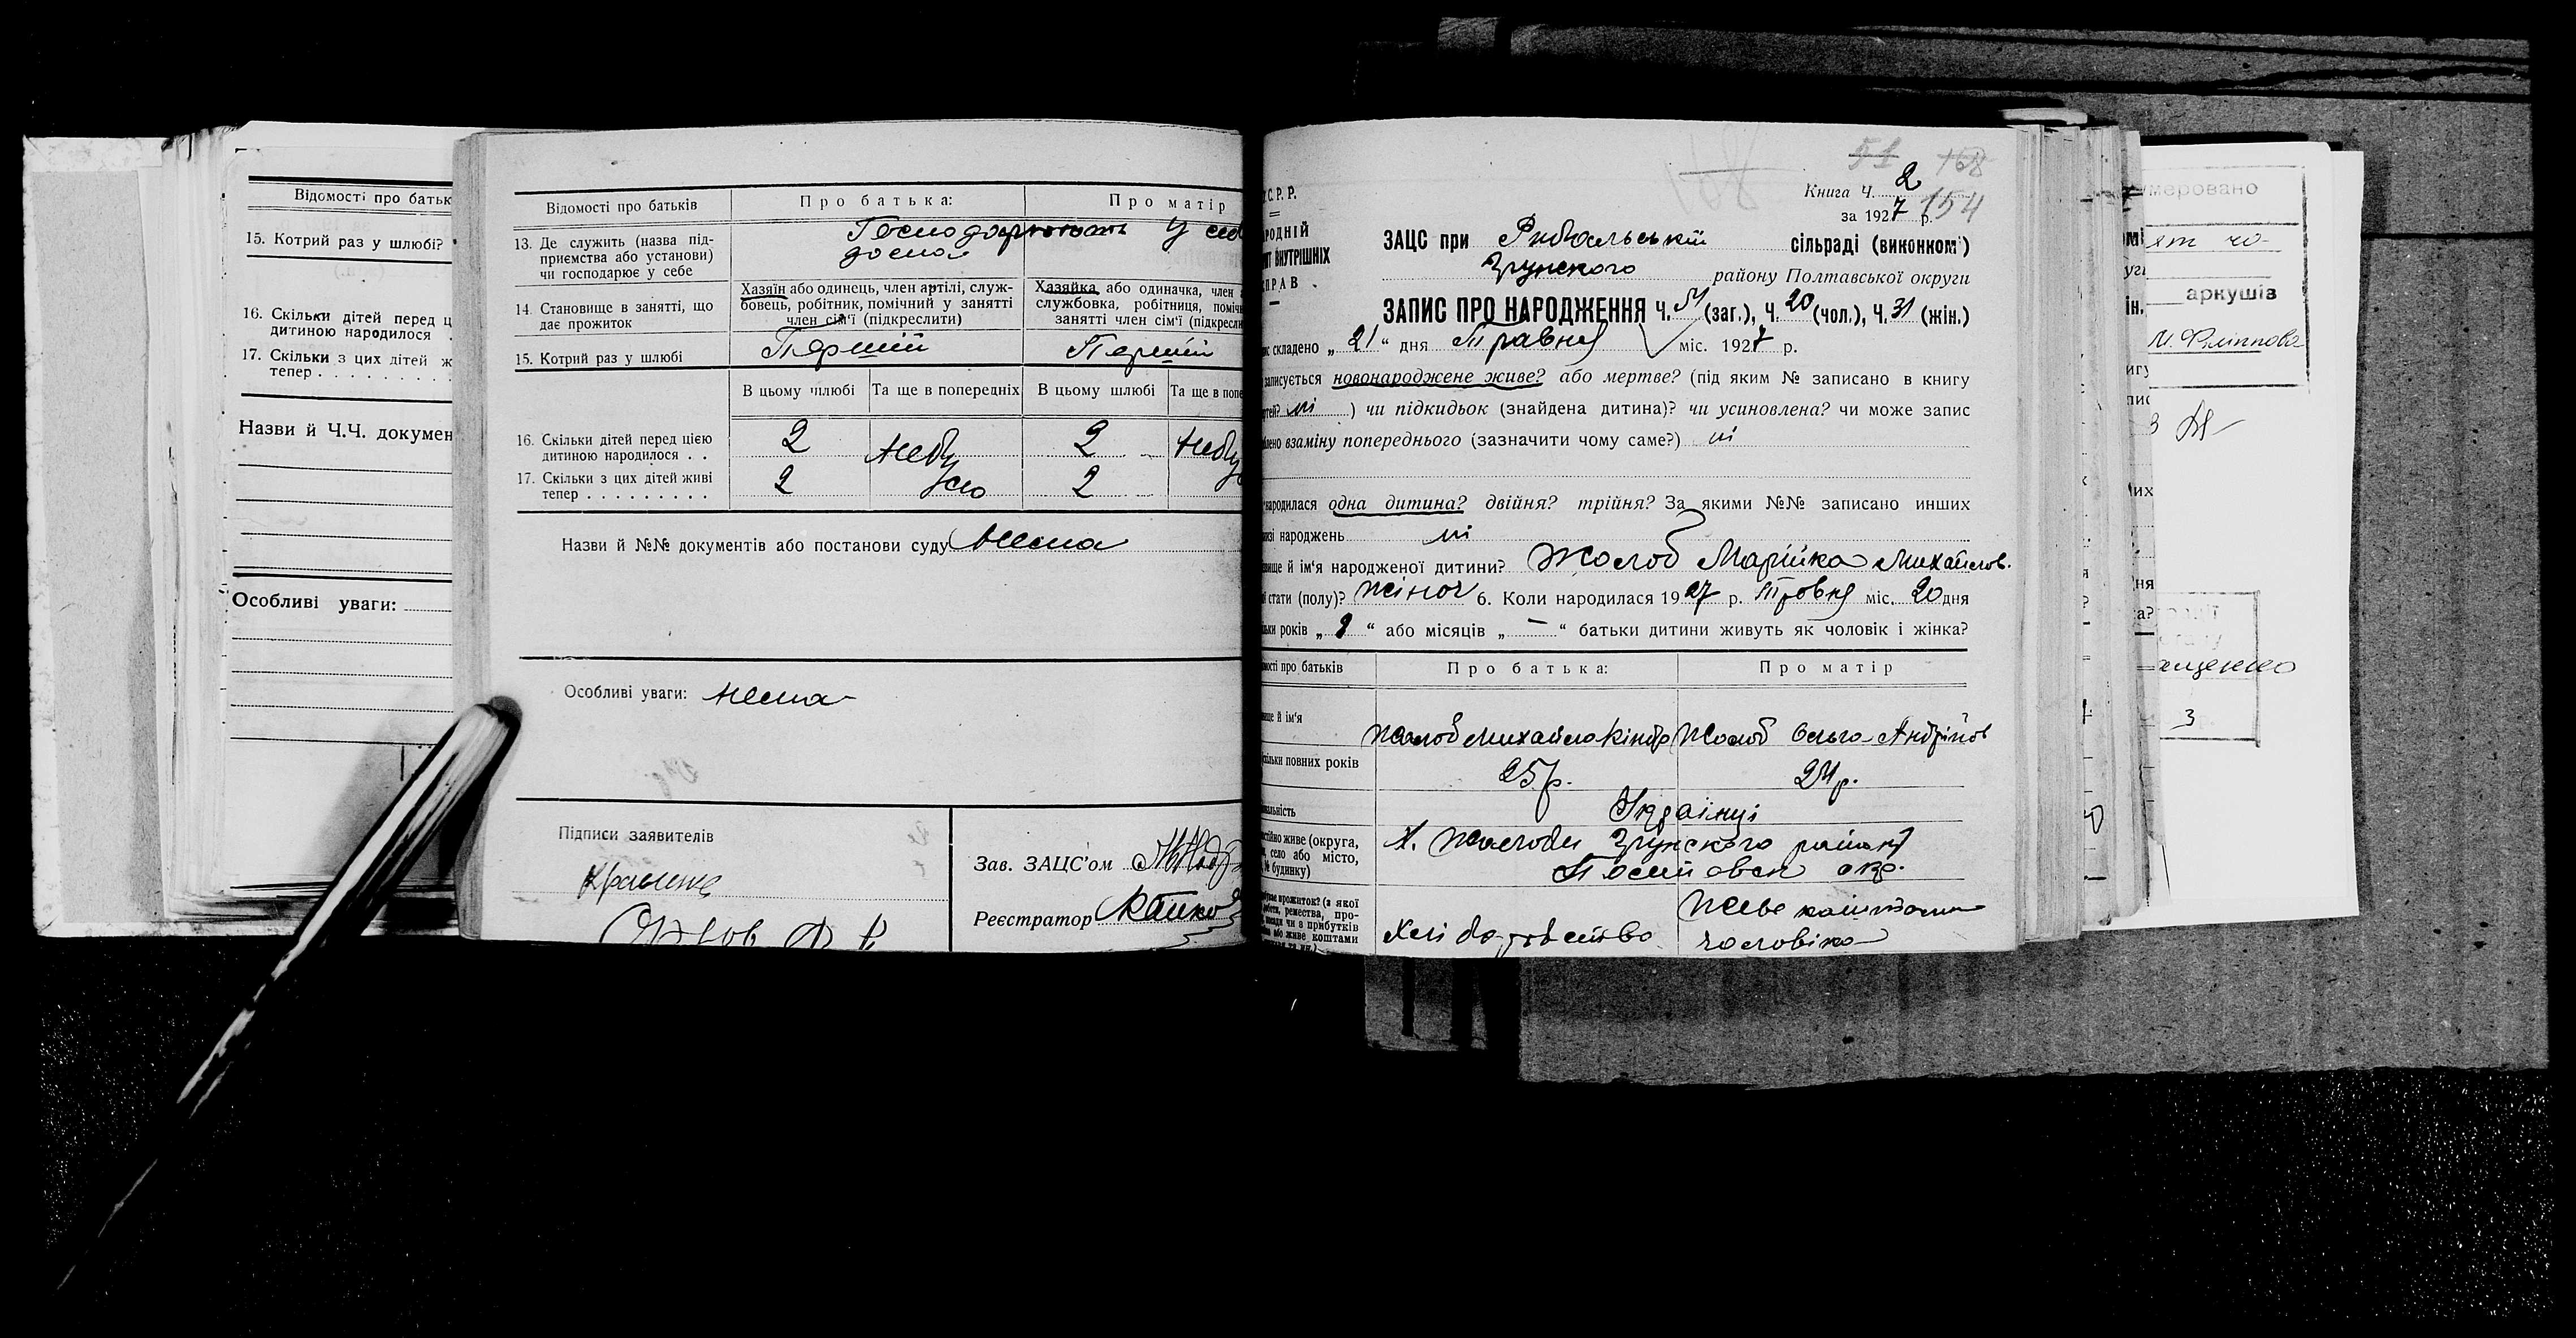 Відомості про батьк
15. Котрий раз у шлюбі?
16. Скільки дітей перед ц
дитиною народилося
17. Скільки з цих дітей ж
тепер
Назви й Ч.Ч. докумен
Особливі уваги:
Відомості про батьків
Про батька:
Про матір
13. Де служить (назва під-
приємства або установи)
чи господарює у себе
Господорюють у себ
дома
14. Становище в занятті, що
дає прожиток
Хазяїн або одинець, член артілі, служ-
бовець, робітник, помічний у занятті
член сім'ї (підкреслити)
Хазяйка або одиначка, член
службовка, робітниця, поміч
занятті член сім'ї (підкресли
15. Котрий раз у шлюбі
Перший
Перший
В цьому шлюбі
Та ще в попередніх
В цьому шлюбі
Та ще в попе
16. Скільки дітей перед цією
дитиною народилося . .
2
небу
2
небу
17. Скільки з цих дітей живі
тепер
2
ло
2
Назви й №№ документів або постанови суду Нема
Особливі уваги: нема
Підписи заявителів
Зав. ЗАЦС'ом
Реєстратор
С.Р.Р.
РОДНІЙ
ВНУТРІШНІХ
ПРАВ
51 168
Книга Ч. 2
за 1927 р. 154
ЗАЦС при Рибальській сільраді (виконком)
Згунского району Полтавської округи
ЗАПИС ПРО НАРОДЖЕННЯ Ч. 51 (заг.), Ч. 20 (чол.), Ч. 31 (жін.)
складено „ 21 “ дня Травня міс. 1927 р.
записується новонароджене живе? або мертве? (під яким № записано в книгу
ні ) чи підкидьок (знайдена дитина)? чи усиновлена? чи може запис
взаміну попереднього (зазначити чому саме?) ні
народилася одна дитина? двійня? трійня? За якими №№ записано инших
народжень ні
й ім'я народженої дитини? Жолоб Марійка Михайлов.
стати (полу)? жіноч 6. Коли народилася 1927 р. Тровня міс. 20 дня
років „ “ або місяців „ — “ батьки дитини живуть як чоловік і жінка?
про батьків
Про батька:
Про матір
й ім'я
Жолоб Михайло Кіндр
Жолоб Ольга Андріїов
повних років
25 р.
24 р.
Українці
живе (округа,
село або місто,
№ будинку)
х. Жолоби Згунского району
Полтавск окр.
прожиток? (з якої
ремества, про-
чи з прибутків
або живе коштами
Хліборобство
Живе коштами
чоловіка
умеровано
аркушів
3
3